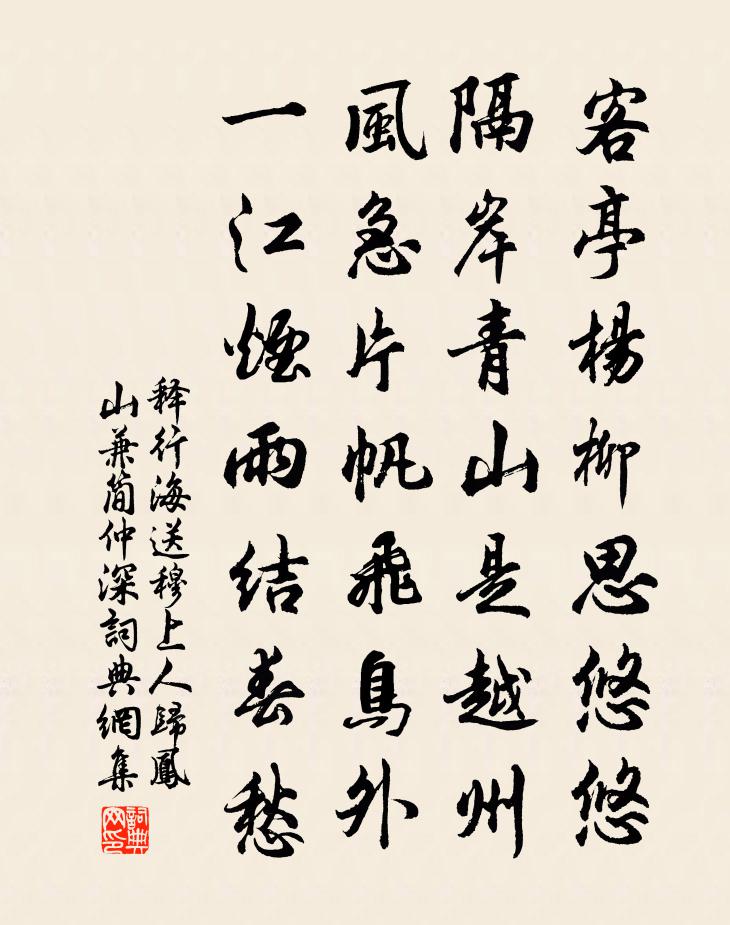 客亭楊柳思悠悠
隔岸青山是越州
風急片帆飛鳥外
一江煙雨結春愁
释行海送穆上人歸鳳
山兼简仲深詞典網集
詞典
网印